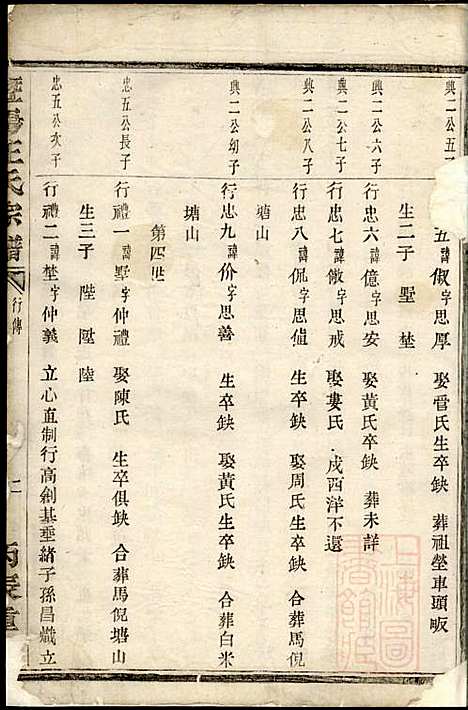 興二公五子
五諱俶字思厚 娶管氏生卒缺 葬祖塋車頭畈
生二子 墅 埜
興二公六子
行忠六諱億字思安 娶黃氏卒缺 葬未詳
興二公七子
行忠七諱儆字思戒 娶婁氏 戍西洋不還
興二公八子
行忠八諱侃字思値 生卒缺 娶周氏生卒缺 合葬馬倪
塘山
興二公幼子
行忠九諱价字思善 生卒缺 娶黃氏生卒缺 合葬白米
塘山
第四世
忠五公長子
行禮一諱墅字仲禮 娶陳氏 生卒俱缺 合葬馬倪塘山
生三子 陛 陞 陸
忠五公次子
行禮二諱埜字仲義 立心直制行高創基垂緒子孫昌熾立
王氏宗譜 行傳 二 丙辰重
上海圖書館藏